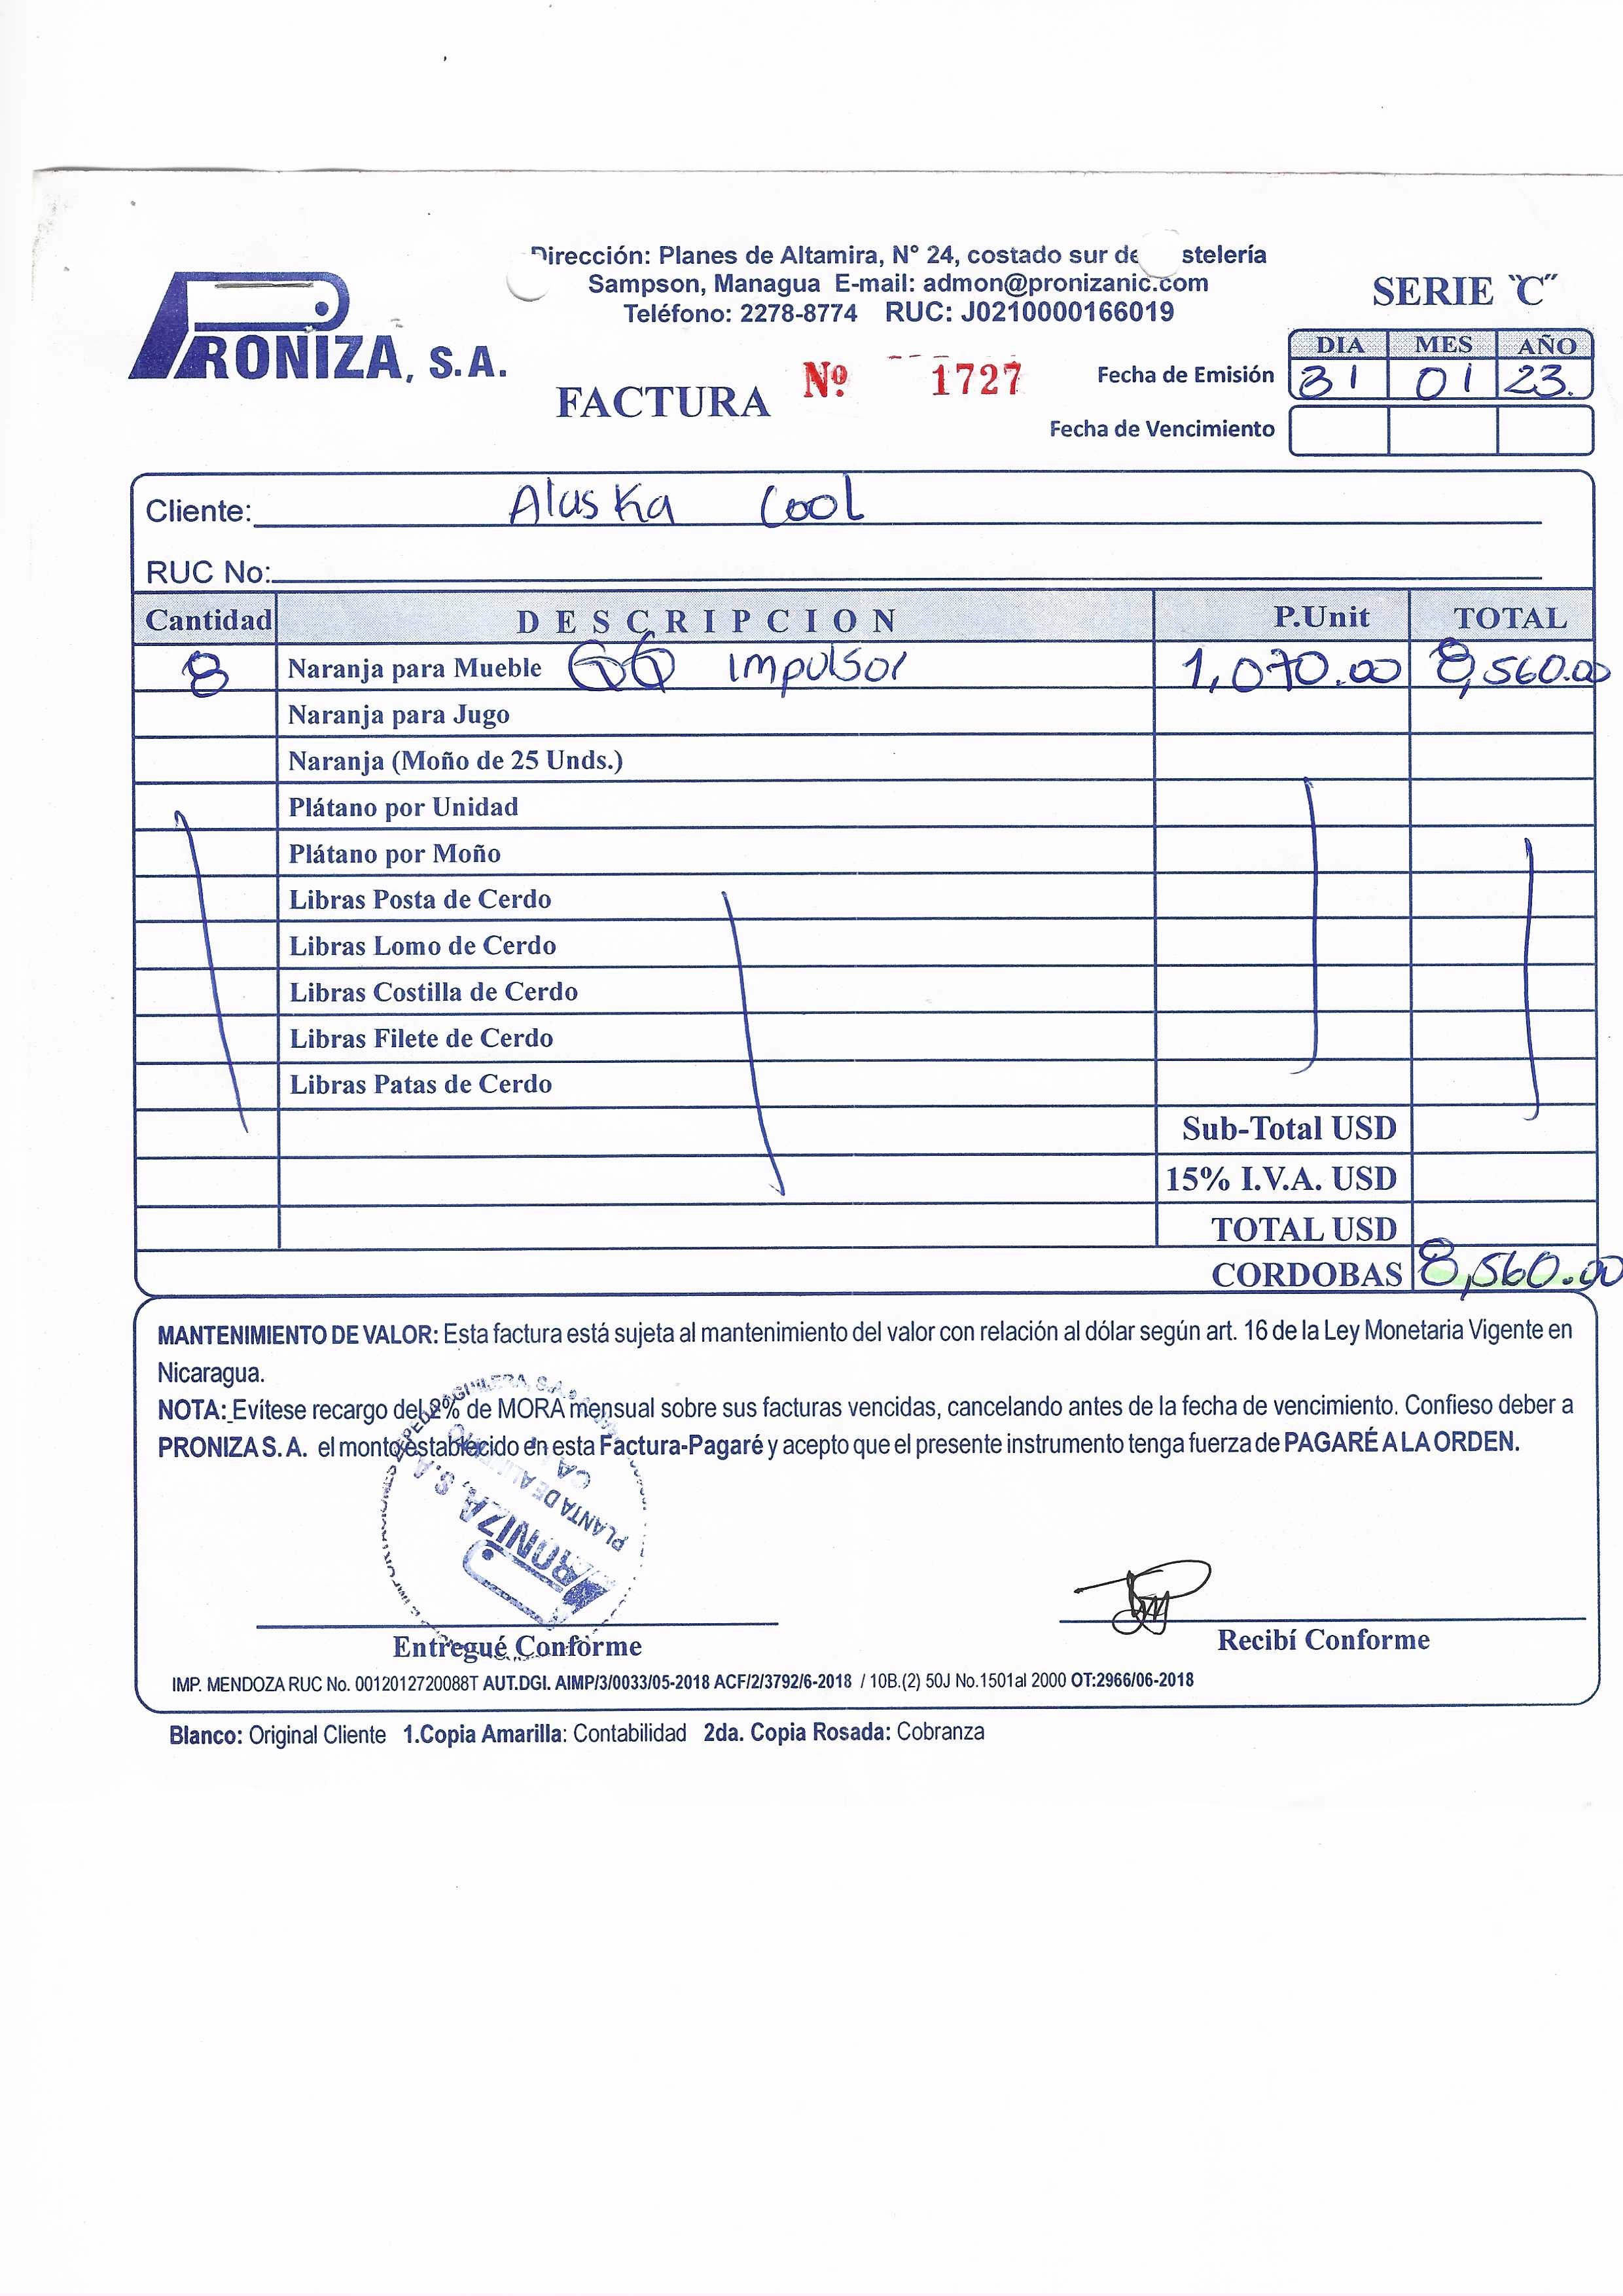 Dirección: Planes de Altamira, N° 24, costado sur de stelería
Sampson, Managua E-mail: admon@pronizanic.com
Teléfono: 2278-8774 RUC: J0210000166019
SERIE "C"
PRONIZA, S.A.
FACTURA Nº 1727
DIA MES AÑO
Fecha de Emisión 31 01 23.
Fecha de Vencimiento
Cliente: Alaska Cool
RUC No:
Cantidad DESCRIPCION P.Unit TOTAL
8 Naranja para Mueble QQ Impulsor 1,070.00 8,560.00
Naranja para Jugo
Naranja (Moño de 25 Unds.)
Plátano por Unidad
Plátano por Moño
Libras Posta de Cerdo
Libras Lomo de Cerdo
Libras Costilla de Cerdo
Libras Filete de Cerdo
Libras Patas de Cerdo
Sub-Total USD
15% I.V.A. USD
TOTAL USD
CORDOBAS 8,560.00
MANTENIMIENTO DE VALOR: Esta factura está sujeta al mantenimiento del valor con relación al dólar según art. 16 de la Ley Monetaria Vigente en
Nicaragua.
NOTA: Evítese recargo del 2% de MORA mensual sobre sus facturas vencidas, cancelando antes de la fecha de vencimiento. Confieso deber a
PRONIZA S. A. el monto establecido en esta Factura-Pagaré y acepto que el presente instrumento tenga fuerza de PAGARÉ A LA ORDEN.
PRONIZA, S.A.
PLANTA DE
Entregué Conforme Recibí Conforme
IMP. MENDOZA RUC No. 0012012720088T AUT.DGI. AIMP/3/0033/05-2018 ACF/2/3792/6-2018 / 10B.(2) 50J No.1501al 2000 OT:2966/06-2018
Blanco: Original Cliente 1.Copia Amarilla: Contabilidad 2da. Copia Rosada: Cobranza